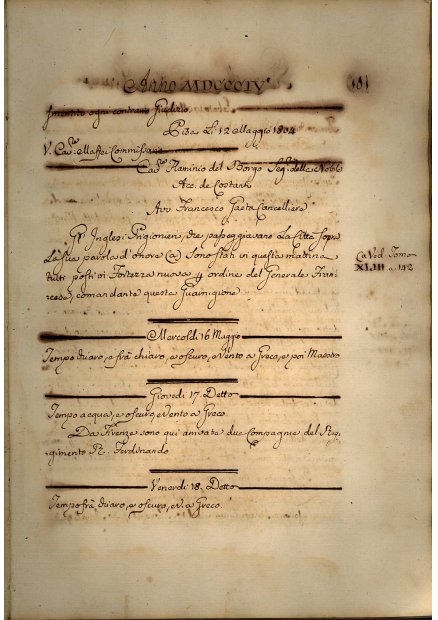 Anno MDCCCIV
181
smentito ogni contrario Giudizio.
Pisa Li 12 Maggio 1804
V. Cav.re Maffei Commissario
Cav.re Flaminio del Borgo
Acc. de Costanti
Avv Francesco Gaeta Cancelliere
Gl' Inglesi Prigionieri, che passeggiavano La Città sopra
La sua parola d'onore (a) sono stati in questa mattina
tutti posti in Fortezza nuova ordine del Generale Fran-
cese, comandante questa Guarnigione.
(a Ved. Tomo
XLIII a 142
Mercoldì 16 Maggio
Tempo chiaro, e frà chiaro, e oscuro, e Vento a Greco, e poi Maestro
Giovedì 17. Detto
Tempo acqua, e oscuro, e Vento a Greco.
Da Firenze sono quì arrivate due Compagnie del Reg-
gimento R. Ferdinando
Venerdì 18. Detto
Tempo frà chiaro, e oscuro, e V. a Greco.